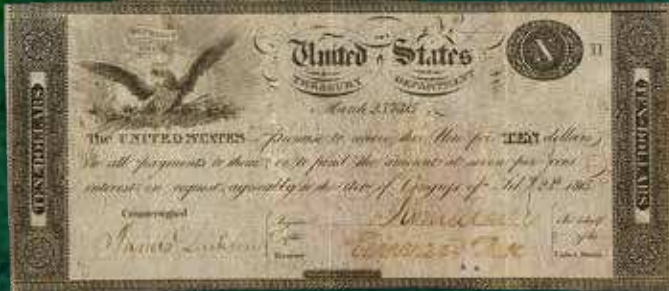 United States
TREASURY DEPARTMENT
X
TEN DOLLARS
TEN DOLLARS
The UNITED STATES promise to receive this Note for TEN dollars
in all payments to them or to fund the amount at seven per cent
interest on request, agreeably to the Act of Congress of Feby 24th 1815
Countersigned
of the
Treasury
On behalf
of the
United States